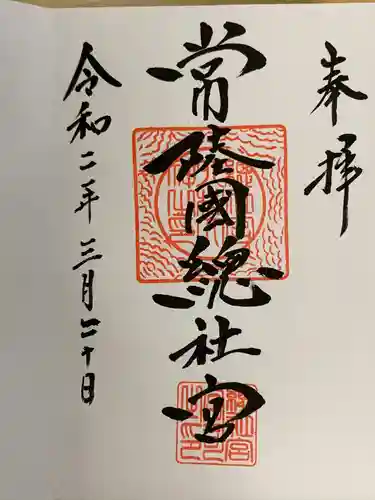 奉拝
常陸國總社宮
令和二年三月二十日